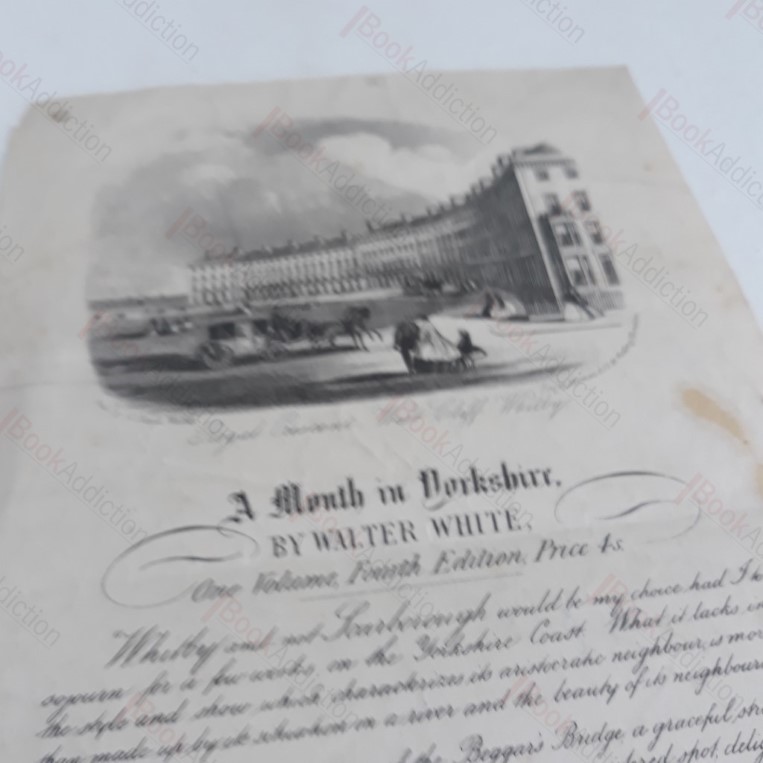 Royal Crescent West Cliff Whitby
A Month in Yorkshire.
BY WALTER WHITE.
One Volume, Fourth Edition, Price 4s.
Whitby and not Scarborough would be my choice had I to
sojourn for a few weeks on the Yorkshire Coast. What it lacks in
the style and show which characterizes its aristocratic neighbour, is more
than made up by its situation on a river and the beauty of its neighbour
the Beggar's Bridge a graceful
spot,
BookAddiction